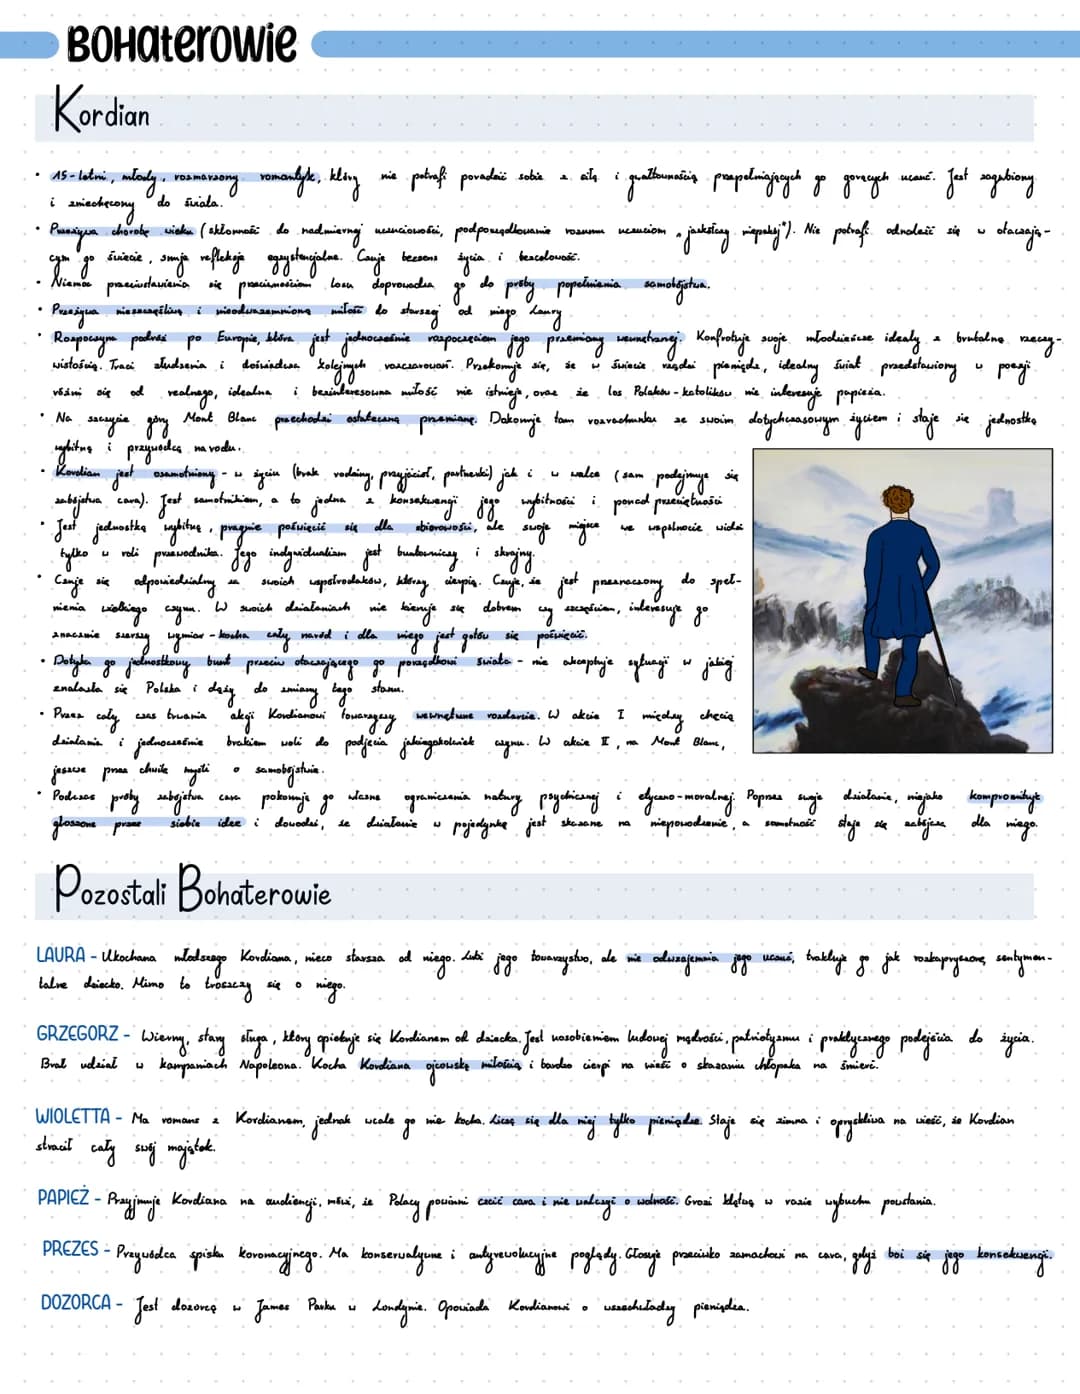 BOHaterowie
Kordian
• 15-letni, młody, rozmarzony romantyk, który nie potrafi poradzić sobie z siłą i gwałtownością przepełniających go gorących uczuć. Jest zagubiony
i zniechęcony do świata.
• Przeżywa chorobę wieku (skłonność do nadmiernej uczuciowości, podporządkowanie rozumu uczuciom „jaskółczy niepokój"). Nie potrafi odnaleźć się w otaczają-
cym go świecie, snuje refleksje egzystencjalne. Czuje bezsens życia i bezcelowość.
• Niemoc przeciwstawienia się przeciwnościom losu doprowadza go do próby popełnienia samobójstwa.
• Przeżywa nieszczęśliwą i nieodwzajemnioną miłość do starszej od niego Laury
• Rozpoczyna podróż po Europie, która jest jednocześnie rozpoczęciem jego przemiany wewnętrznej. Konfrotuje swoje młodzieńcze ideały z brutalną rzeczy-
wistością. Traci złudzenia i doświadcza kolejnych rozczarowań. Przekonuje się, że w świecie rządzi pieniądz, idealny świat przedstawiony w poezji
różni się od realnego, idealna i bezinteresowna miłość nie istnieje, oraz że los Polaków-katolików nie interesuje papieża.
• Na szczycie góry Mont Blanc przechodzi ostateczną przemianę. Dokonuje tam rozrachunku ze swoim dotychczasowym życiem i staje się jednostką
wybitną i przywódcą narodu.
• Kordian jest osamotniony - w życiu (brak rodziny, przyjaciół, partnerki) jak i w walce (sam podejmuje się
zabójstwa cara). Jest samotnikiem, a to jedna z konsekwencji jego wybitności i ponad przeciętności
• Jest jednostką wybitną, pragnie poświęcić się dla zbiorowości, ale swoje miejsce we wspólnocie widzi
tylko w roli przewodnika. Jego indywidualizm jest buntowniczy i skrajny.
• Czuje się odpowiedzialny za swoich współrodaków, którzy cierpią. Czuje, że jest przeznaczony do speł-
nienia wielkiego czynu. W swoich działaniach nie kieruje się dobrem czy szczęściem, interesuje go
znacznie szerszy wymiar - kocha cały naród i dla niego jest gotów się poświęcić.
• Dotyka go jednostkowy bunt przeciw otaczającego go porządkowi świata - nie akceptuje sytuacji w jakiej
znalazła się Polska i dąży do zmiany tego stanu.
• Przez cały czas trwania akcji Kordianowi towarzyszy wewnętrzne rozdarcie. W akcie I między chęcią
działania i jednocześnie brakiem woli do podjęcia jakiegokolwiek czynu. W akcie II, na Mont Blanc,
jeszcze przez chwilę myśli o samobójstwie.
• Podczas próby zabójstwa cara pokonują go własne ograniczenia natury psychicznej i etyczno-moralnej. Poprzez swoje działanie, niejako kompromituje
głoszone przez siebie idee i dowodzi, że działanie w pojedynkę jest skazane na niepowodzenie, a samotność staje się zabójcza dla niego.
Pozostali Bohaterowie
LAURA - Ukochana młodszego Kordiana, nieco starsza od niego. Lubi jego towarzystwo, ale nie odwzajemnia jego uczuć, traktuje go jak rozkapryszone, sentymen-
talne dziecko. Mimo to troszczy się o niego.
GRZEGORZ - Wierny, stary sługa, który opiekuje się Kordianem od dziecka. Jest uosobieniem ludowej mądrości, patriotyzmu i praktycznego podejścia do życia.
Brał udział w kampaniach Napoleona. Kocha Kordiana ojcowską miłością i bardzo cierpi na wieść o skazaniu chłopaka na śmierć.
WIOLETTA - Ma romans z Kordianem, jednak wcale go nie kocha. Liczą się dla niej tylko pieniądze. Staje się zimna i opryskliwa na wieść, że Kordian
stracił cały swój majątek.
PAPIEŻ - Przyjmuje Kordiana na audiencji, mówi, że Polacy powinni czcić cara i nie walczyć o wolność. Grozi klątwą w razie wybuchu powstania.
PREZES - Przywódca spisku koronacyjnego. Ma konserwatywne i antyrewolucyjne poglądy. Głosuje przeciwko zamachowi na cara, gdyż boi się jego konsekwencji.
DOZORCA - Jest dozorcą w James Parku w Londynie. Opowiada Kordianowi o wszechwładzy pieniądza.